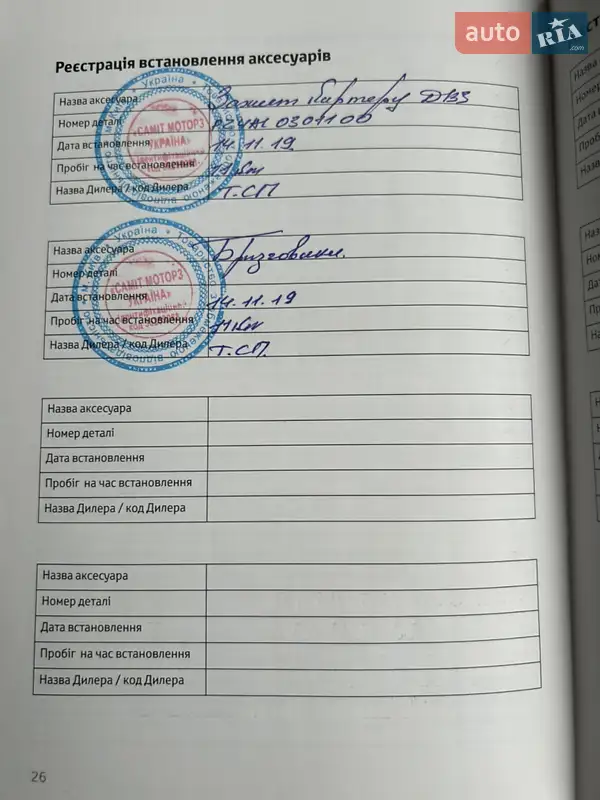 auto RIA .com
Реєстрація встановлення аксесуарів
Назва аксесуара Захист Картеру ДВЗ
Номер деталі
Дата встановлення 14.11.19
Пробіг на час встановлення 11 км
Назва Дилера / код Дилера Т.СП
Назва аксесуара Бризговики.
Номер деталі
Дата встановлення 14.11.19
Пробіг на час встановлення 11 км
Назва Дилера / код Дилера Т.СП.
Україна
«САМІТ МОТОРЗ
УКРАЇНА»
Україна
«САМІТ МОТОРЗ
УКРАЇНА»
Назва аксесуара
Номер деталі
Дата встановлення
Пробіг на час встановлення
Назва Дилера / код Дилера
Назва аксесуара
Номер деталі
Дата встановлення
Пробіг на час встановлення
Назва Дилера / код Дилера
26